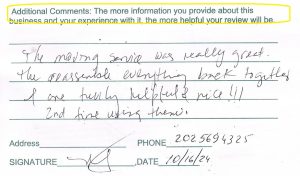 Additional Comments: The more information you provide about this
business and your experience with it, the more helpful your review will be.
The moving service was really great.
The reassemble everything back together
& are helpful & nice!!!
2nd time using these.
Address PHONE 2025694325
SIGNATURE DATE 10/16/24